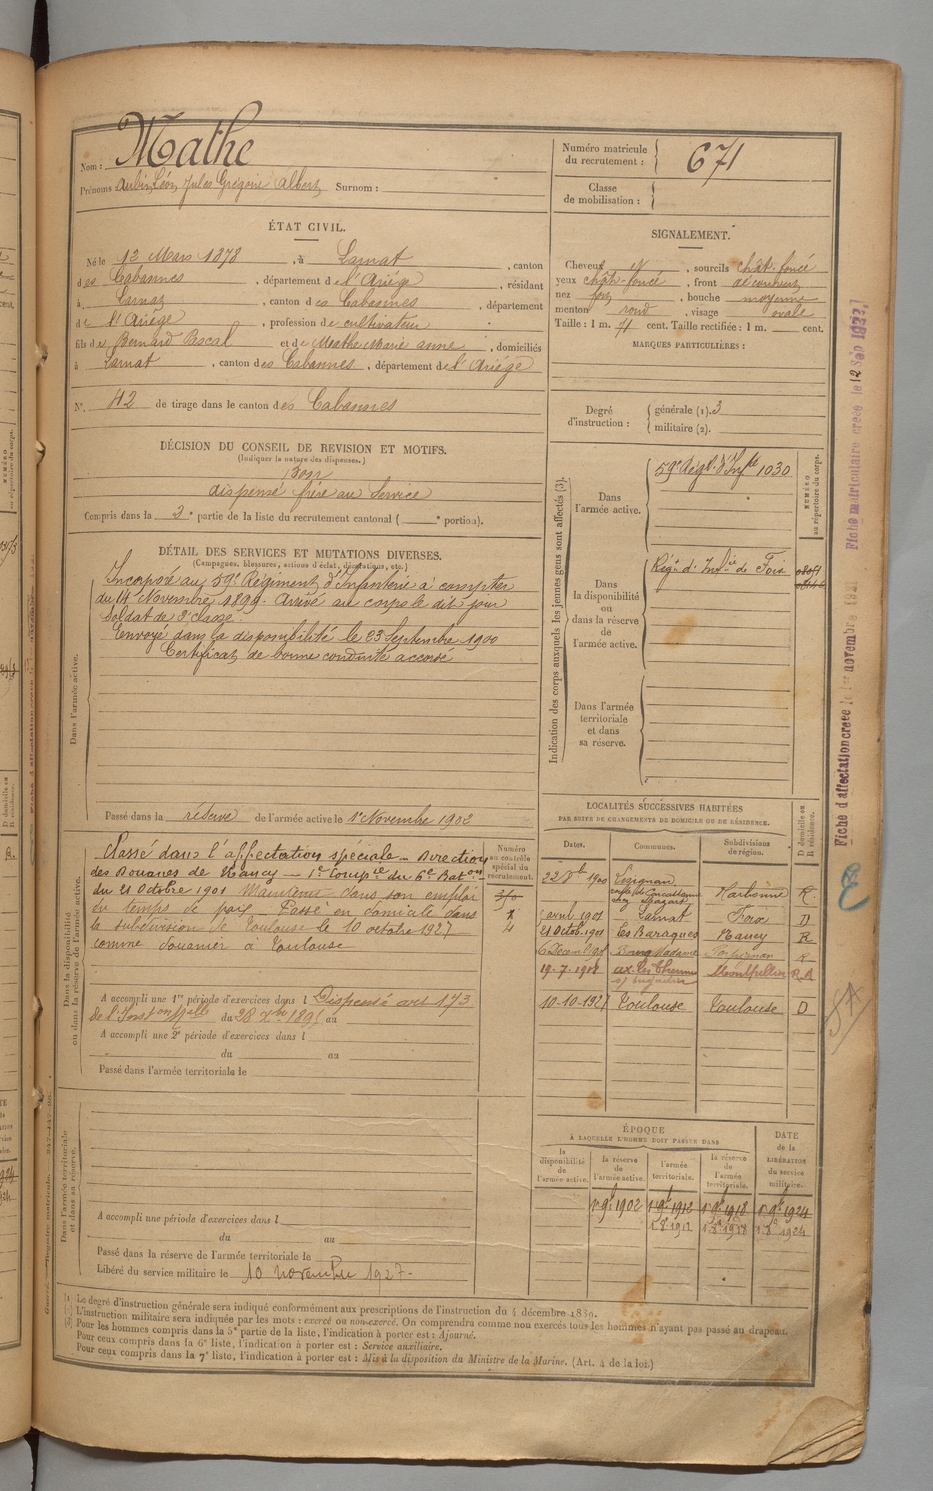 Nom : Mathe
Prénoms Aubin, Léon, Jules Grégoire Albert Surnom :
ÉTAT CIVIL.
Né le 13 Mars 1878, à Larnat, canton
des Cabannes, département de l'Ariége, résidant
à Larnat, canton des Cabannes, département
de l'Ariége, profession de cultivateur
fils de Bernard Pascal et de Mathe Marie anne, domiciliés
à Larnat, canton des Cabannes, département de l'Ariége
N°. 42 de tirage dans le canton des Cabannes
DÉCISION DU CONSEIL DE REVISION ET MOTIFS.
(Indiquer la nature des dispenses.)
Bon
dispensé frère au Service
Compris dans la 3e partie de la liste du recrutement cantonal ( e portion).
DÉTAIL DES SERVICES ET MUTATIONS DIVERSES.
(Campagnes, blessures, actions d'éclat, décorations, etc.)
Dans l'armée active.
Incorporé au 59e Régiment d'Infanterie à compter
du 14 Novembre 1899. Arrivé au corps le dit jour
Soldat de 2e classe.
Envoyé dans la disponibilité le 23 Septembre 1900
Certificat de bonne conduite accordé
Passé dans la réserve de l'armée active le 1er Novembre 1902
Dans la disponibilité
ou dans la réserve de l'armée active.
Numéro
au contrôle
spécial du
recrutement.
Classé dans l'affectation spéciale - Direction
des Douanes de Nancy - 1e Compie du 6e Baton
du 21 Octobre 1901 Maintenu dans son emploi
en temps de paix. Passé en domicile dans
la subdivision de Toulouse le 10 octobre 1927
comme douanier à Toulouse
A accompli une 1re période d'exercices dans l Dispensé art 173
de l'Inston Mlle du 28 Xbre 1895 au
A accompli une 2e période d'exercices dans l
du au
Passé dans l'armée territoriale le
Dans l'armée territoriale
et dans sa réserve.
A accompli une période d'exercices dans l
du au
Passé dans la réserve de l'armée territoriale le
Libéré du service militaire le 10 novembre 1927-
Numéro matricule
du recrutement : 671
Classe
de mobilisation :
SIGNALEMENT.
Cheveux et, sourcils chât-foncé
yeux chât-foncé, front découvert
nez fort, bouche moyenne
menton rond, visage ovale
Taille : 1 m. 71 cent. Taille rectifiée : 1 m. cent.
MARQUES PARTICULIÈRES :
Degré
d'instruction :
générale (1). 3
militaire (2).
Indication des corps auxquels les jeunes gens sont affectés (3).
NUMÉRO
au répertoire du corps.
Dans
l'armée active.
59e Régt d'Infie 1030
Dans
la disponibilité
ou dans la réserve
de
l'armée active.
Régt d'Infie de Foix
Dans l'armée
territoriale
et dans
sa réserve.
LOCALITÉS SUCCESSIVES HABITÉES
PAR SUITE DE CHANGEMENTS DE DOMICILE OU DE RÉSIDENCE.
Dates. Communes. Subdivisions
de région. D domicile ou
R résidence.
1900 Lézignan Narbonne R.
avril 1901 Larnat Foix D
21 Octob. 1901 Les Baraques Nancy R
Bourg Madame Perpignan R
19-7-1918 Montpellier R.D
10-10-1927 Toulouse Toulouse D
ÉPOQUE
À LAQUELLE L'HOMME DOIT PASSER DANS
DATE
de la
LIBÉRATION
du service
militaire.
la
disponibilité
de
l'armée active.
la réserve
de
l'armée active.
l'armée
territoriale.
la réserve
de
l'armée
territoriale.
1er 9bre 1902 1er 9bre 1912 1er 9bre 1918 1er 9bre 1924
Fiche d'affectation créée le 1er novembre 1921. Fiche matriculaire créée le 12 Sep 1927.
(1) Le degré d'instruction générale sera indiqué conformément aux prescriptions de l'instruction du 4 décembre 1889.
(2) L'instruction militaire sera indiquée par les mots : exercé ou non-exercé. On comprendra comme non exercés tous les hommes n'ayant pas passé au drapeau.
(3) Pour les hommes compris dans la 5e partie de la liste, l'indication à porter est : Ajourné.
Pour ceux compris dans la 6e liste, l'indication à porter est : Service auxiliaire.
Pour ceux compris dans la 7e liste, l'indication à porter est : Mis à la disposition du Ministre de la Marine. (Art. 4 de la loi.)